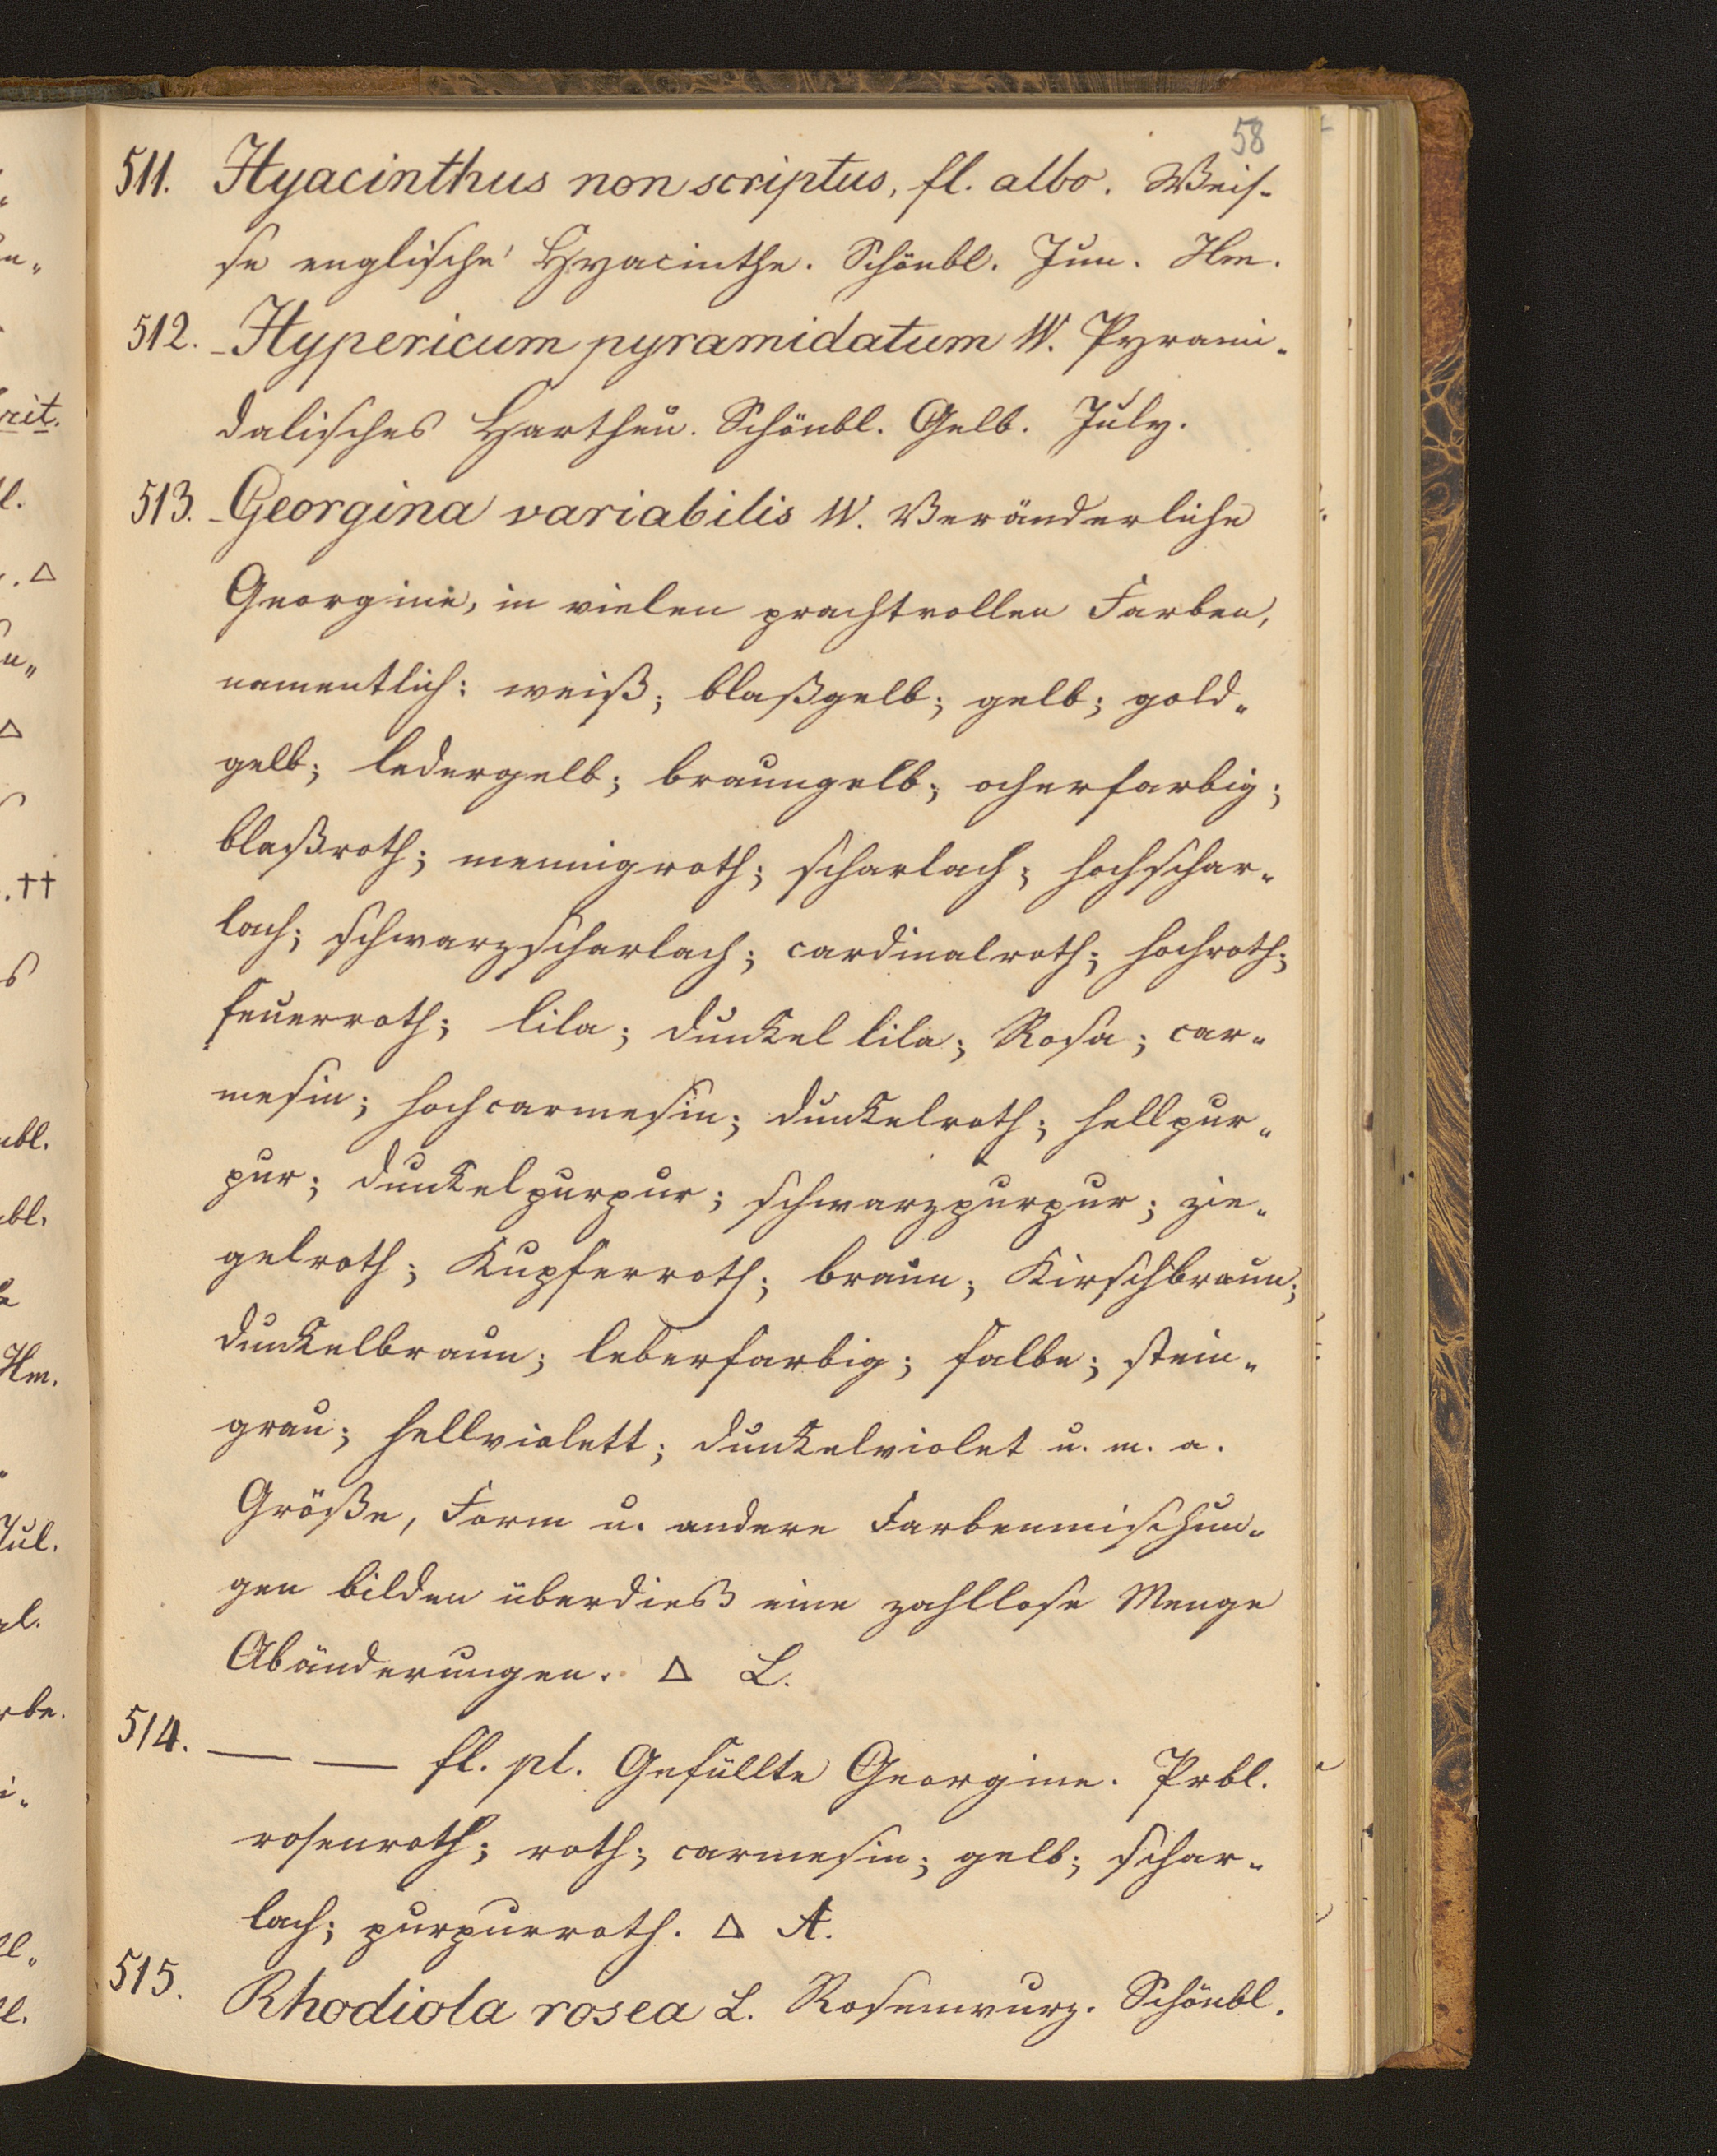 58
511. Hyacinthus non scriptus, fl. albo. Weis-
se englische Hyacinthe. Schönbl. Jun. Hm.
512. Hypericum pyramidatum W. Pyrami-
dalisches Hartheu. Schönbl. Gelb. July.
513. Georgina variabilis W. Veränderliche
Georgine, in vielen prachtvollen Farben,
namentlich: weiß; blaßgelb; gelb; gold-
gelb; ledergelb; braungelb; ocherfarbig;
blaßroth; mennigroth; scharlach; hochschar-
lach; schwarzscharlach; cardinalroth; hochroth;
feuerroth; lila; dunkel lila; Rosa; car-
mesin; hochcarmesin; dunkelroth; hellpur-
pur; dunkelpurpur; schwarzpurpur; zie-
gelroth; Kupferroth; braun; Kirschbraun;
dunkelbraun; leberfarbig; falbe; stein-
grau; hellviolett; dunkelviolet u. m. a.
Größe, Form u. andere Farbenmischun-
gen bilden überdieß eine zahllose Menge
Abänderungen. △ L.
514. — — fl. pl. Gefüllte Georgine. Prbl.
rosenroth; roth; carmesin; gelb; schar-
lach; purpurroth. △ A.
515. Rhodiola rosea L. Rosenwurz. Schönbl.